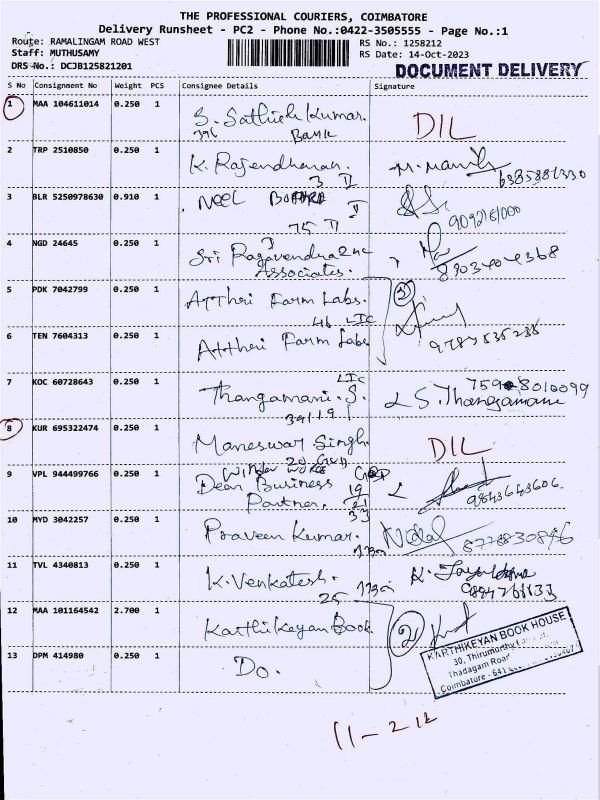 THE PROFESSIONAL COURIERS, COIMBATORE
Delivery Runsheet - PC2 - Phone No.:0422-3505555 - Page No.:1
Route: RAMALINGAM ROAD WEST
RS No.: 1258212
Staff: MUTHUSAMY
RS Date: 14-Oct-2023
DRS No.: DCJB125821201
DOCUMENT DELIVERY
S No Consignment No Weight PCS Consignee Details Signature
1 MAA 104611014 0.250 1 S. Sathish Kumar. DIL
396 Bank
2 TRP 2510850 0.250 1 K. Rajendharan.
3 II
3 BLR 5250978630 0.910 1 NEEL
75 II
4 NGD 24645 0.250 1 Sri Ragavendra
Associates. 8903404368
5 PDK 7042799 0.250 1 Atthri Farm Labs. 2
46 LIC
6 TEN 7604313 0.250 1 Atthri Farm Labs 9787535235
LIC
7 KOC 60728643 0.250 1 Thangamani. S. S. Thangamani
39/19
8 KUR 695322474 0.250 1 Maneswar Singh. DIL
9 VPL 944499766 0.250 1 Dean Business 19
Partner. 21 9843643606.
33
10 MYD 3042257 0.250 1 Praveen Kumar. 8778830896
11 TVL 4340813 0.250 1 K. Venkatesh.
25
12 MAA 101164542 2.700 1 Karthikeyan Book 2
KARTHIKEYAN BOOK HOUSE
30, Thirumurthy
Thadagam Road
Coimbatore - 641
13 DPM 414980 0.250 1 Do.
11 - 2